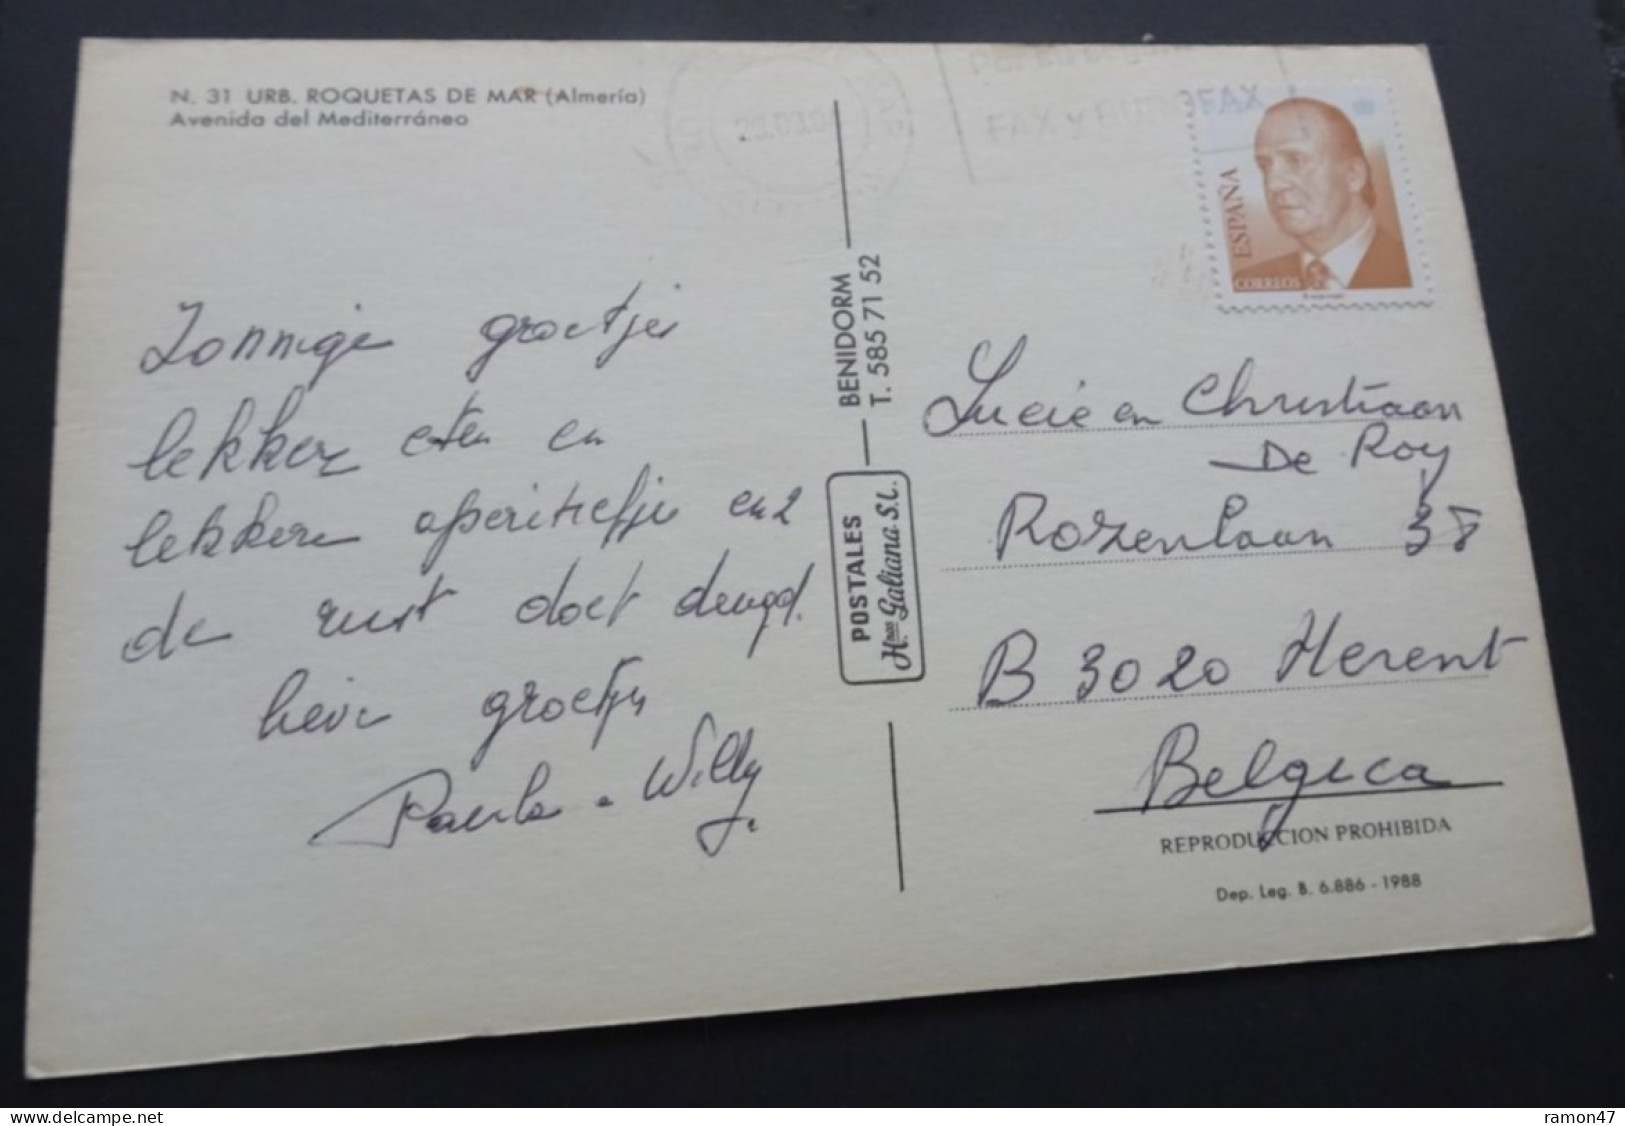 N. 31 URB. ROQUETAS DE MAR (Almería)
Avenida del Mediterráneo
FAX y BUROFAX
ESPAÑA
CORREOS
Zonnige groetjes
lekker eten en
lekkere aperitiefje enz
de rust doet deugd.
lieve groetjes
Paula - Willy.
BENIDORM
T. 585 71 52
POSTALES
Hnos Galiana S.L.
Lucie en Christiaan
De Roy
Rozenlaan 38
B 3020 Herent
Belgica
REPRODUCCION PROHIBIDA
Dep. Leg. B. 6.886 - 1988
delcampe.net
ramon47